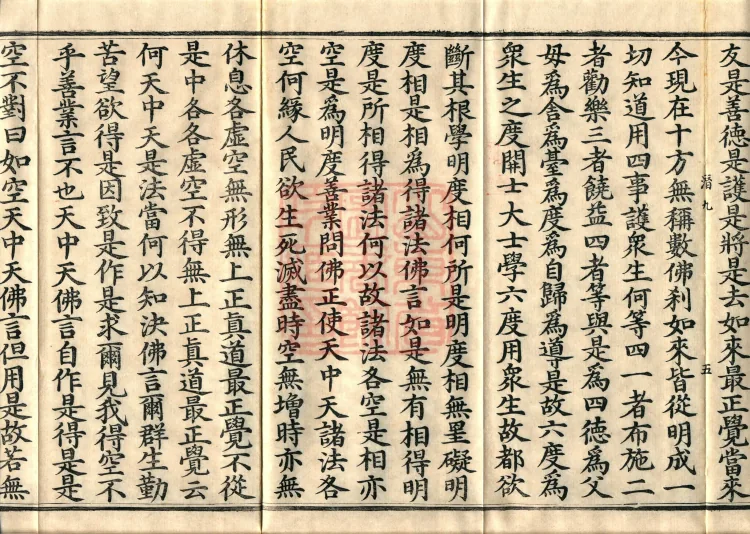 友是善德是護是將是去如來最正覺當來
今現在十方無稱數佛刹如來皆從明成一
切知道用四事護衆生何等四一者布施二
者勸樂三者饒益四者等與是爲四德爲父
母爲舍爲臺爲度爲自歸爲導是故六度爲
衆生之度開士大士學六度用衆生故都欲
斷其根學明度相何所是明度相無罣礙明
度相是相爲得諸法佛言如是無有相得明
度是所相得諸法何以故諸法各空是相亦
空是爲明度善業問佛正使天中天諸法各
空何緣人民欲生死滅盡時空無增時亦無
休息各虛空無形無上正眞道最正覺不從
是中各各虛空不得無上正眞道最正覺云
何天中天是法當何以知決佛言爾群生勤
苦望欲得是因致是作是求爾見我得空不
乎善業言不也天中天佛言自作是得是是
空不對曰如空天中天佛言但用是故若無
潛九
五